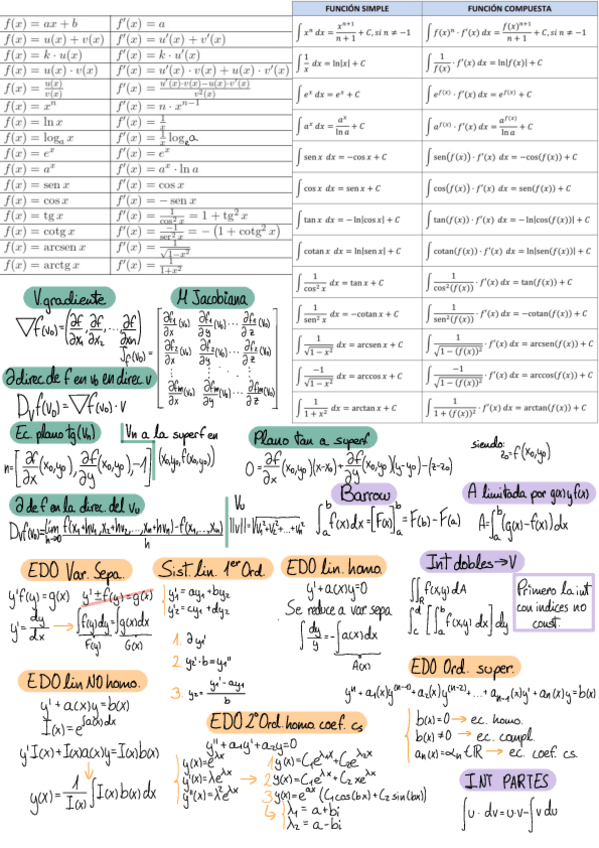 f(x) = ax + b f'(x) = a
f(x) = u(x) + v(x) f'(x) = u'(x) + v'(x)
f(x) = k · u(x) f'(x) = k · u'(x)
f(x) = u(x) · v(x) f'(x) = u'(x) · v(x) + u(x) · v'(x)
f(x) = u(x)/v(x) f'(x) = (u'(x)·v(x)−u(x)·v'(x))/v²(x)
f(x) = xⁿ f'(x) = n · xⁿ⁻¹
f(x) = ln x f'(x) = 1/x
f(x) = logₐ x f'(x) = 1/x logₑ a
f(x) = eˣ f'(x) = eˣ
f(x) = aˣ f'(x) = aˣ · ln a
f(x) = sen x f'(x) = cos x
f(x) = cos x f'(x) = − sen x
f(x) = tg x f'(x) = 1/cos² x = 1 + tg² x
f(x) = cotg x f'(x) = −1/sen² x = − (1 + cotg² x)
f(x) = arcsen x f'(x) = 1/√(1−x²)
f(x) = arctg x f'(x) = 1/(1+x²)
FUNCIÓN SIMPLE FUNCIÓN COMPUESTA
∫ xⁿ dx = xⁿ⁺¹/(n + 1) + C, si n ≠ −1 ∫ f(x)ⁿ · f'(x) dx = f(x)ⁿ⁺¹/(n + 1) + C, si n ≠ −1
∫ 1/x dx = ln|x| + C ∫ 1/f(x) · f'(x) dx = ln|f(x)| + C
∫ eˣ dx = eˣ + C ∫ e^f(x) · f'(x) dx = e^f(x) + C
∫ aˣ dx = aˣ/ln a + C ∫ a^f(x) · f'(x) dx = a^f(x)/ln a + C
∫ sen x dx = −cos x + C ∫ sen(f(x)) · f'(x) dx = −cos(f(x)) + C
∫ cos x dx = sen x + C ∫ cos(f(x)) · f'(x) dx = sen(f(x)) + C
∫ tan x dx = −ln|cos x| + C ∫ tan(f(x)) · f'(x) dx = −ln|cos(f(x))| + C
∫ cotan x dx = ln|sen x| + C ∫ cotan(f(x)) · f'(x) dx = ln|sen(f(x))| + C
∫ 1/cos² x dx = tan x + C ∫ 1/cos²(f(x)) · f'(x) dx = tan(f(x)) + C
∫ 1/sen² x dx = −cotan x + C ∫ 1/sen²(f(x)) · f'(x) dx = −cotan(f(x)) + C
∫ 1/√(1 − x²) dx = arcsen x + C ∫ 1/√(1 − (f(x))²) · f'(x) dx = arcsen(f(x)) + C
∫ −1/√(1 − x²) dx = arccos x + C ∫ −1/√(1 − (f(x))²) · f'(x) dx = arccos(f(x)) + C
∫ 1/(1 + x²) dx = arctan x + C ∫ 1/(1 + (f(x))²) · f'(x) dx = arctan(f(x)) + C
V gradiente
∇f(v₀) = (∂f/∂x₁, ∂f/∂x₂, ..., ∂f/∂xn)
M Jacobiana
Jf(v₀) =
∂f₁/∂x (v₀) ∂f₁/∂y (v₀) ... ∂f₁/∂z (v₀)
∂f₂/∂x (v₀) ∂f₂/∂y (v₀) ... ∂f₂/∂z (v₀)
∂fm/∂x (v₀) ∂fm/∂y (v₀) ... ∂fm/∂z (v₀)
∂ direc. de f en v₀ en direc. v
Dvf(v₀) = ∇f(v₀) · v
Ec. plano tg (Vn)
n = [∂f/∂x (x₀,y₀), ∂f/∂y (x₀,y₀), −1]
Vn a la superf en
(x₀,y₀, f(x₀,y₀))
Plano tan a superf
0 = ∂f/∂x (x₀,y₀)(x−x₀) + ∂f/∂y (x₀,y₀)(y−y₀) − (z−z₀)
siendo:
z₀ = f(x₀,y₀)
∂ de f en la direc. del vu
Dvf(v₀) = lim h→0 (f(x₁+hv₁, x₂+hv₂, ..., xn+hvn) − f(x₁,...,xn))/h
Vu
||v|| = √(v₁²+v₂²+...+vn²)
Barrow
∫ₐᵇ f(x)dx = [F(x)]ₐᵇ = F(b) − F(a)
A limitada por g(x) y f(x)
A = ∫ₐᵇ (g(x) − f(x)) dx
EDO Var. Sepa.
y'f(y) = g(x) y' ± f(y) = g(x)
y' = dy/dx → ∫f(y)dy = ∫g(x)dx
F(y) G(x)
Sist. lin. 1er Ord.
y₁' = ay₁ + by₂
y₂' = cy₁ + dy₂
1. ∂ y₁'
2. y₂' · b = y₁''
3. y₂ = (y₁' − ay₁)/b
EDO lin. homo.
y' + a(x)y = 0
Se reduce a var sepa
∫ dy/y = −∫ a(x)dx
A(x)
Int dobles → V
∬R f(x,y) dA
∫c^d [∫ₐᵇ f(x,y) dx] dy
Primero la int
con indices no
const.
EDO lin NO homo.
y' + a(x)y = b(x)
I(x) = e^∫a(x)dx
y'I(x) + I(x)a(x)y = I(x)b(x)
y(x) = 1/I(x) ∫ I(x) b(x) dx
EDO 2º Ord. homo. coef. cs
y'' + a₁y' + a₂y = 0
y(x) = e^λx
y'(x) = λe^λx
y''(x) = λ²e^λx
1 y(x) = C₁e^λ₁x + C₂e^λ₂x
2 y(x) = C₁e^λx + C₂xe^λx
3 y(x) = e^ax (C₁cos(bx) + C₂ sin(bx))
λ₁ = a + bi
λ₂ = a − bi
EDO Ord. super.
yⁿ + a₁(x)y⁽ⁿ⁻¹⁾ + a₂(x)y⁽ⁿ⁻²⁾ + ... + aₙ₋₁(x)y' + aₙ(x)y = b(x)
b(x) = 0 → ec. homo.
b(x) ≠ 0 → ec. compl.
aₙ(x) = αₙ ∈ ℝ → ec. coef. cs.
INT PARTES
∫ u · dv = u·v − ∫ v du